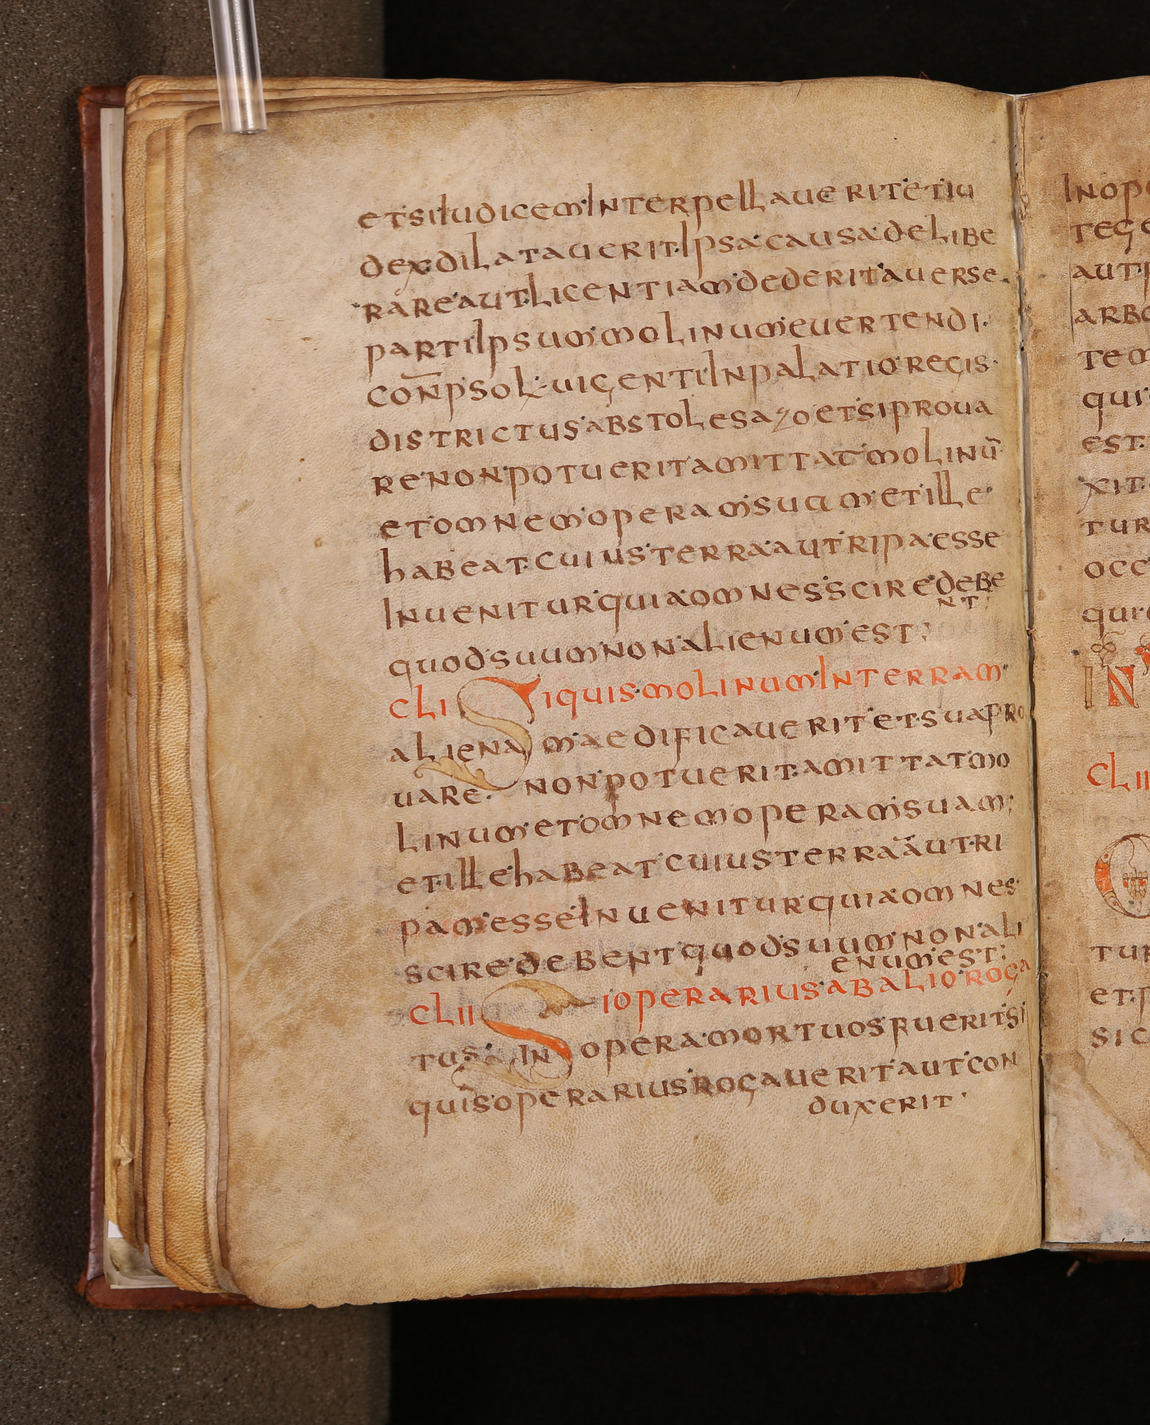 etsi iudicem interpellauerit et iu
dex dilatauerit ipsa causa delibe
rare aut licentiam dederit auerse
parti ipsum molinum euertendi
con̄p sol uigenti in palatio regis
districtus ab stolesazo et si proua
re non potuerit amittat molinū
et omnem operam suam et ille
habeat cuius terra aut ripa esse
inuenitur quia omnes scire debe
nt
quod suum non alienum est
CLI Si quis molinum in terram
alienam aedificauerit et sua pro
uare non potuerit amittat mo
linum et omnem operam suam
et ille habeat cuius terra aut ri
pam esse inuenitur quia omnes
scire debent quod suum non ali
enum est
CLII Si operarius ab alio roga
tus in opera mortuos fuerit si
quis operarius rogauerit aut con
duxerit
inop
tege
aut
arbo
tem
qui
est
xit
tur
occ
qui
IN
CLII
tur
et
sic